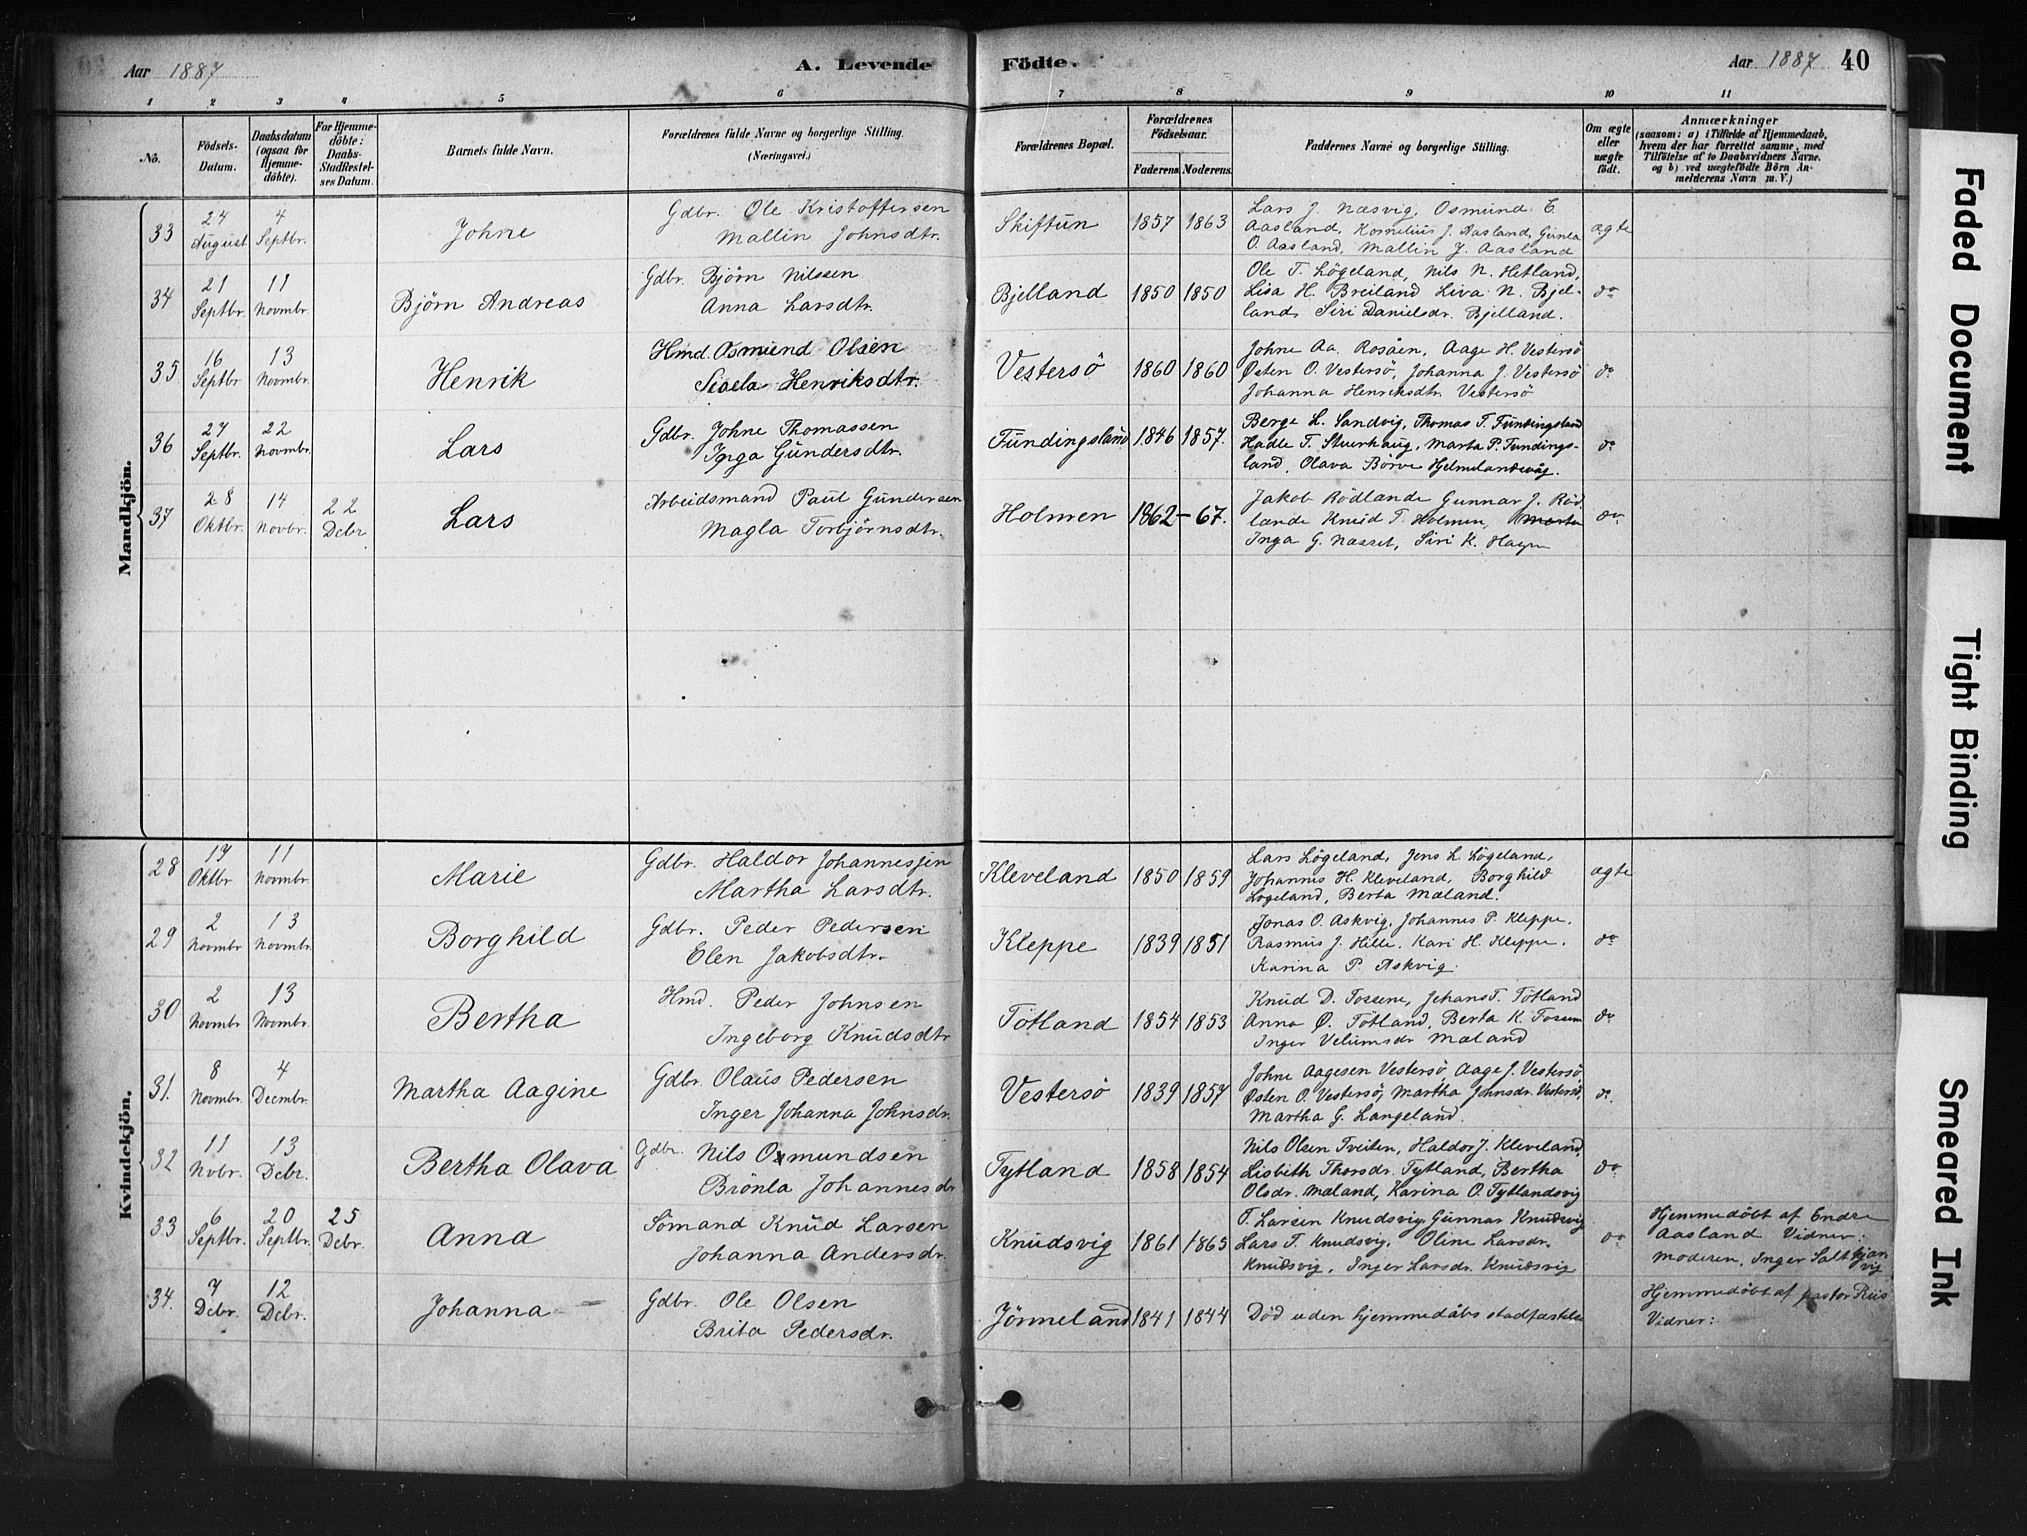 Aar 1887 A. Levende Födte. Aar 1887 40
1 2 3 4 5 6 7 8 9 10 11
No. Födsels-Datum. Daabsdatum (ogsaa for Hjemmedöbte). For Hjemmedöbte: Daabs-Stadfæstelses Datum. Barnets fulde Navn. Forældrenes fulde Navne og borgerlige Stilling. (Næringsvei.) Forældrenes Bopæl. Forældrenes Födselsaar. Faderens Moderens Faddernes Navne og borgerlige Stilling. Om ægte eller uægte födt. Anmærkninger (saasom: a) i Tilfælde af Hjemmedaab, hvem der har forrettet samme, med Tilföielse af to Daabsvidners Navne. og b) ved uægtefödte Börn Anmelderens Navn m. V.)
Mandkjön.
33 27 August 4 Septbr. Johne Gdbr. Ole Kristoffersen Skiftun 1857 1863 Lars J. Næsvig, Osmund E. ægte
Mallin Johnsdtr. Aasland, Kornelius J. Aasland, Gunla
O. Aasland, Mallin J. Aasland
34 21 Septbr. 11 Novmbr. Björn Andreas Gdbr. Björn Nilssen Bjelland 1850 1850 Ole T. Lögeland, Nils N. Hetland, do
Anna Larsdtr. Lisa H. Breiland Liva N. Bjel-
land, Siri Danielsdr. Bjelland.
35 16 Septbr 13 Novmbr. Henrik Hmd. Osmund Olsen Vestersö 1860 1860 Johne Aa. Rosåen, Aage H. Vestersö do
Henriksdtr. Østen O. Vestersö, Johanna J. Vestersö
Johanna Henriksdtr. Vestersö
36 27 Septbr. 22 Novmbr. Lars Gdbr. Johne Thomassen Fundingsland 1846 1857. Berge L. Sandvig, Thomas T. Fundingsland do
Inga Gundersdtr. Hadle T. Stuerhaug, Marta P. Fundings-
land, Olava Börve Hjelmelandsvåg.
37 28 Oktbr. 14 Novbr. 22 Debr Lars Arbeidsmand Paul Gundersen Holmen 1862 - 67. Jakob Rödlande Gunnar J. Röd- do
Magla Torbjörnsdtr. lande Knud T. Holmen, Marta
Inga G. Næsset, Siri K.
Kvindekjön.
28 17 Oktbr 11 Novmbr. Marie Gdbr. Haldor Johannessen Kleveland 1850 1859 Lars Lögeland, Jens L Lögeland, ægte
Martha Larsdtr. Johannes H. Kleveland, Borghild
Lögeland, Berta Mæland.
29 2 Novmbr 13 Novmbr. Borghild Gdbr. Peder Pedersen Kleppe 1839 1851 Jonas O. Askvig, Johannes P. Kleppe. do
Elen Jakobsdtr. Rasmus J. Hille. Kari H. Kleppe.
Karina P. Askvig.
30 2 Novmbr 13 Novmbr. Bertha Hmd. Peder Johnsen Tötland 1854 1853 Knud D. Tossene, Jehans T. Tötland do
Ingeborg Knudsdtr Anna Ø. Tötland, Berta K.
Inger Velumsdr Mæland
31. 8 Novmbr. 4 Decmbr. Martha Aagine Gdbr. Olaus Pedersen Vestersö 1839 1857 Johne Aagesen Vestersö, Aage J. Vestersö, do.
Inger Johanna Johnsdr. Østen O. Vestersö, Martha Johnsdr. Vestersö,
Martha G. Langeland.
32 11 Novbr. 13 Debr. Bertha Olava Gdbr. Nils Osmundsen Tytland 1858 1854 Nils Olsen Tveiten, Haldor J. Kleveland, do
Brönla Johannesdr Lisbith Thorsdr. Tytland, Bertha
Olsdr. Mæland, Karina O. Tytlandsvig
33 6 Septbr. 20 Septbr. 25 Debr. Anna Sömand Knud Larsen Knudsvig 1861 1865 T. Larsen Knudsvig, Gunnar Knudsvig do Hjemmedöbt af Endre
Johanna Andersdr. Lars T. Knudsvig, Oline Larsdr. Aasland Vidner:
Knudsvig, Inger Larsdr. Knudsvig moderen, Inger
34. 7 Debr. 12 Debr. Johanna Gdbr. Ole Olsen Jönneland 1841 1844 Död uden hjemmedåbs Hjemmedöbt af pastor Riis
Brita Pedersdr. Vidner:
Faded Document
Tight Binding
Smeared Ink